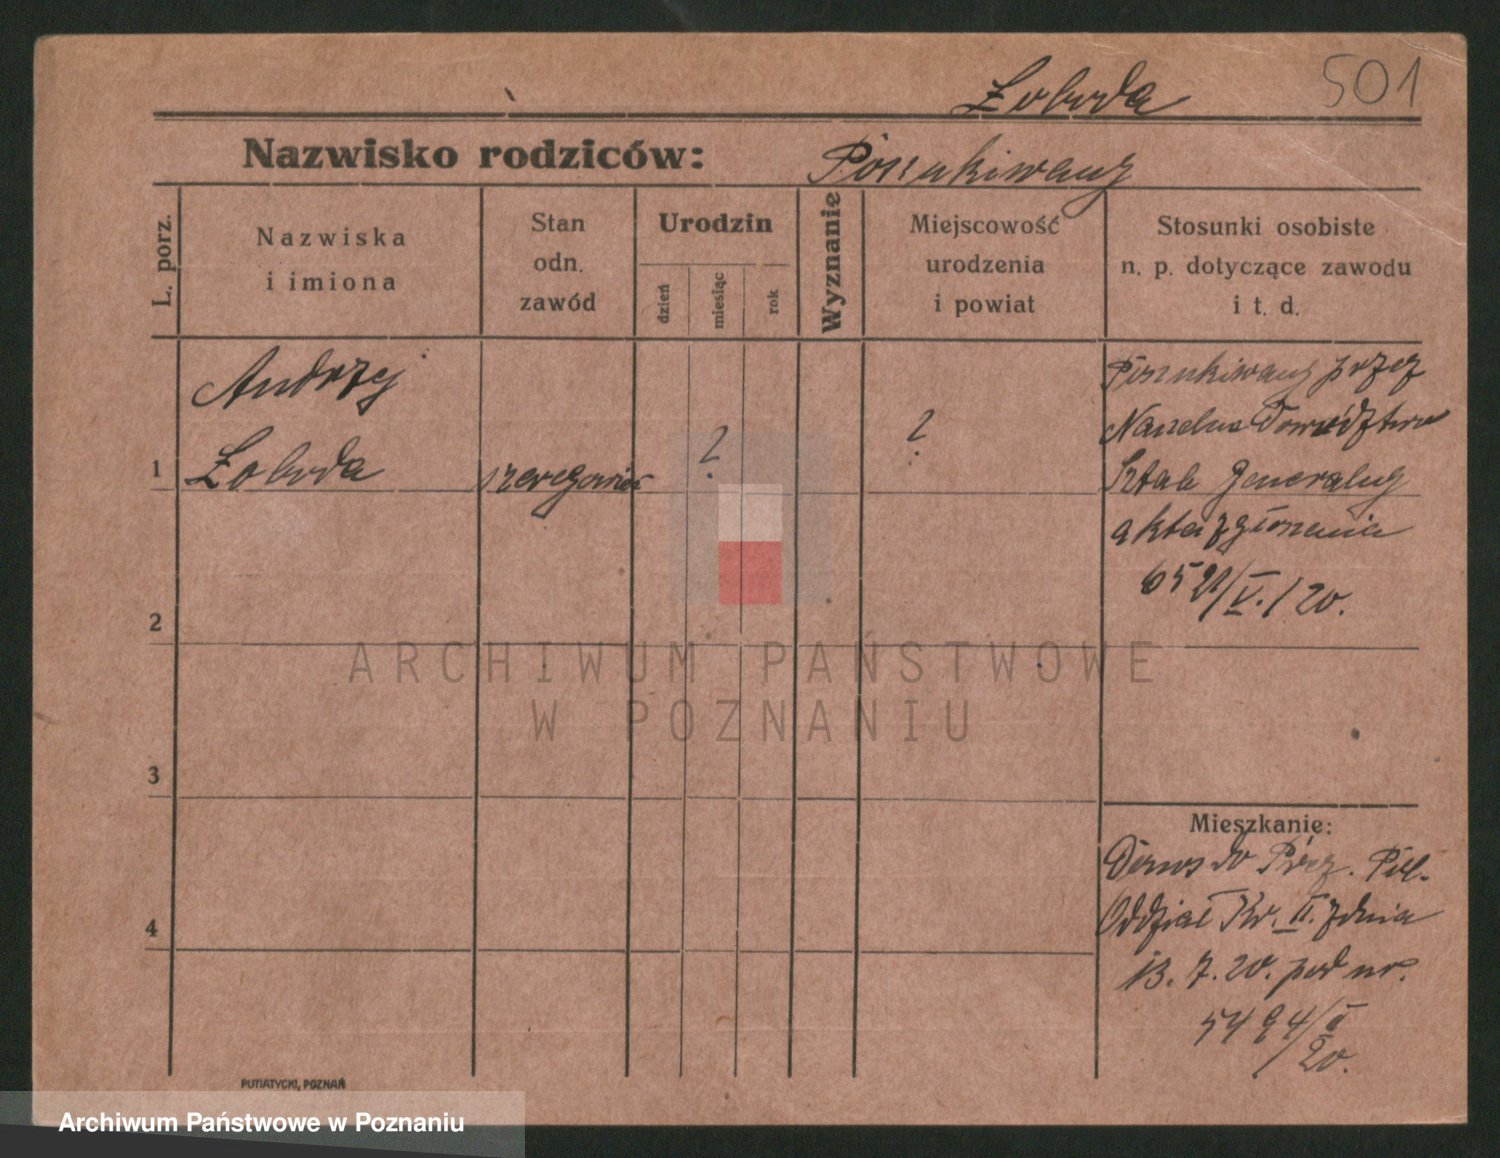 Łoboda 501
Nazwisko rodziców: Poszukiwany
L. porz.
Nazwiska
i imiona
Stan
odn.
zawód
Urodzin
dzień
miesiąc
rok
Wyznanie
Miejscowość
urodzenia
i powiat
Stosunki osobiste
n. p. dotyczące zawodu
i t. d.
1
Andrzej
Łoboda
szeregowiec
?
?
Poszukiwany przez
Naczelne Dowództwo
Sztab Generalny
akta zgłoszenia
6521/V./20.
2
3
4
Mieszkanie:
Donos do Prez. Pol.
Oddział Kr. II. z dnia
13. 7. 20. pod nr.
5494/II
20.
PUTIATYCKI, POZNAŃ
ARCHIWUM PAŃSTWOWE
W POZNANIU
Archiwum Państwowe w Poznaniu